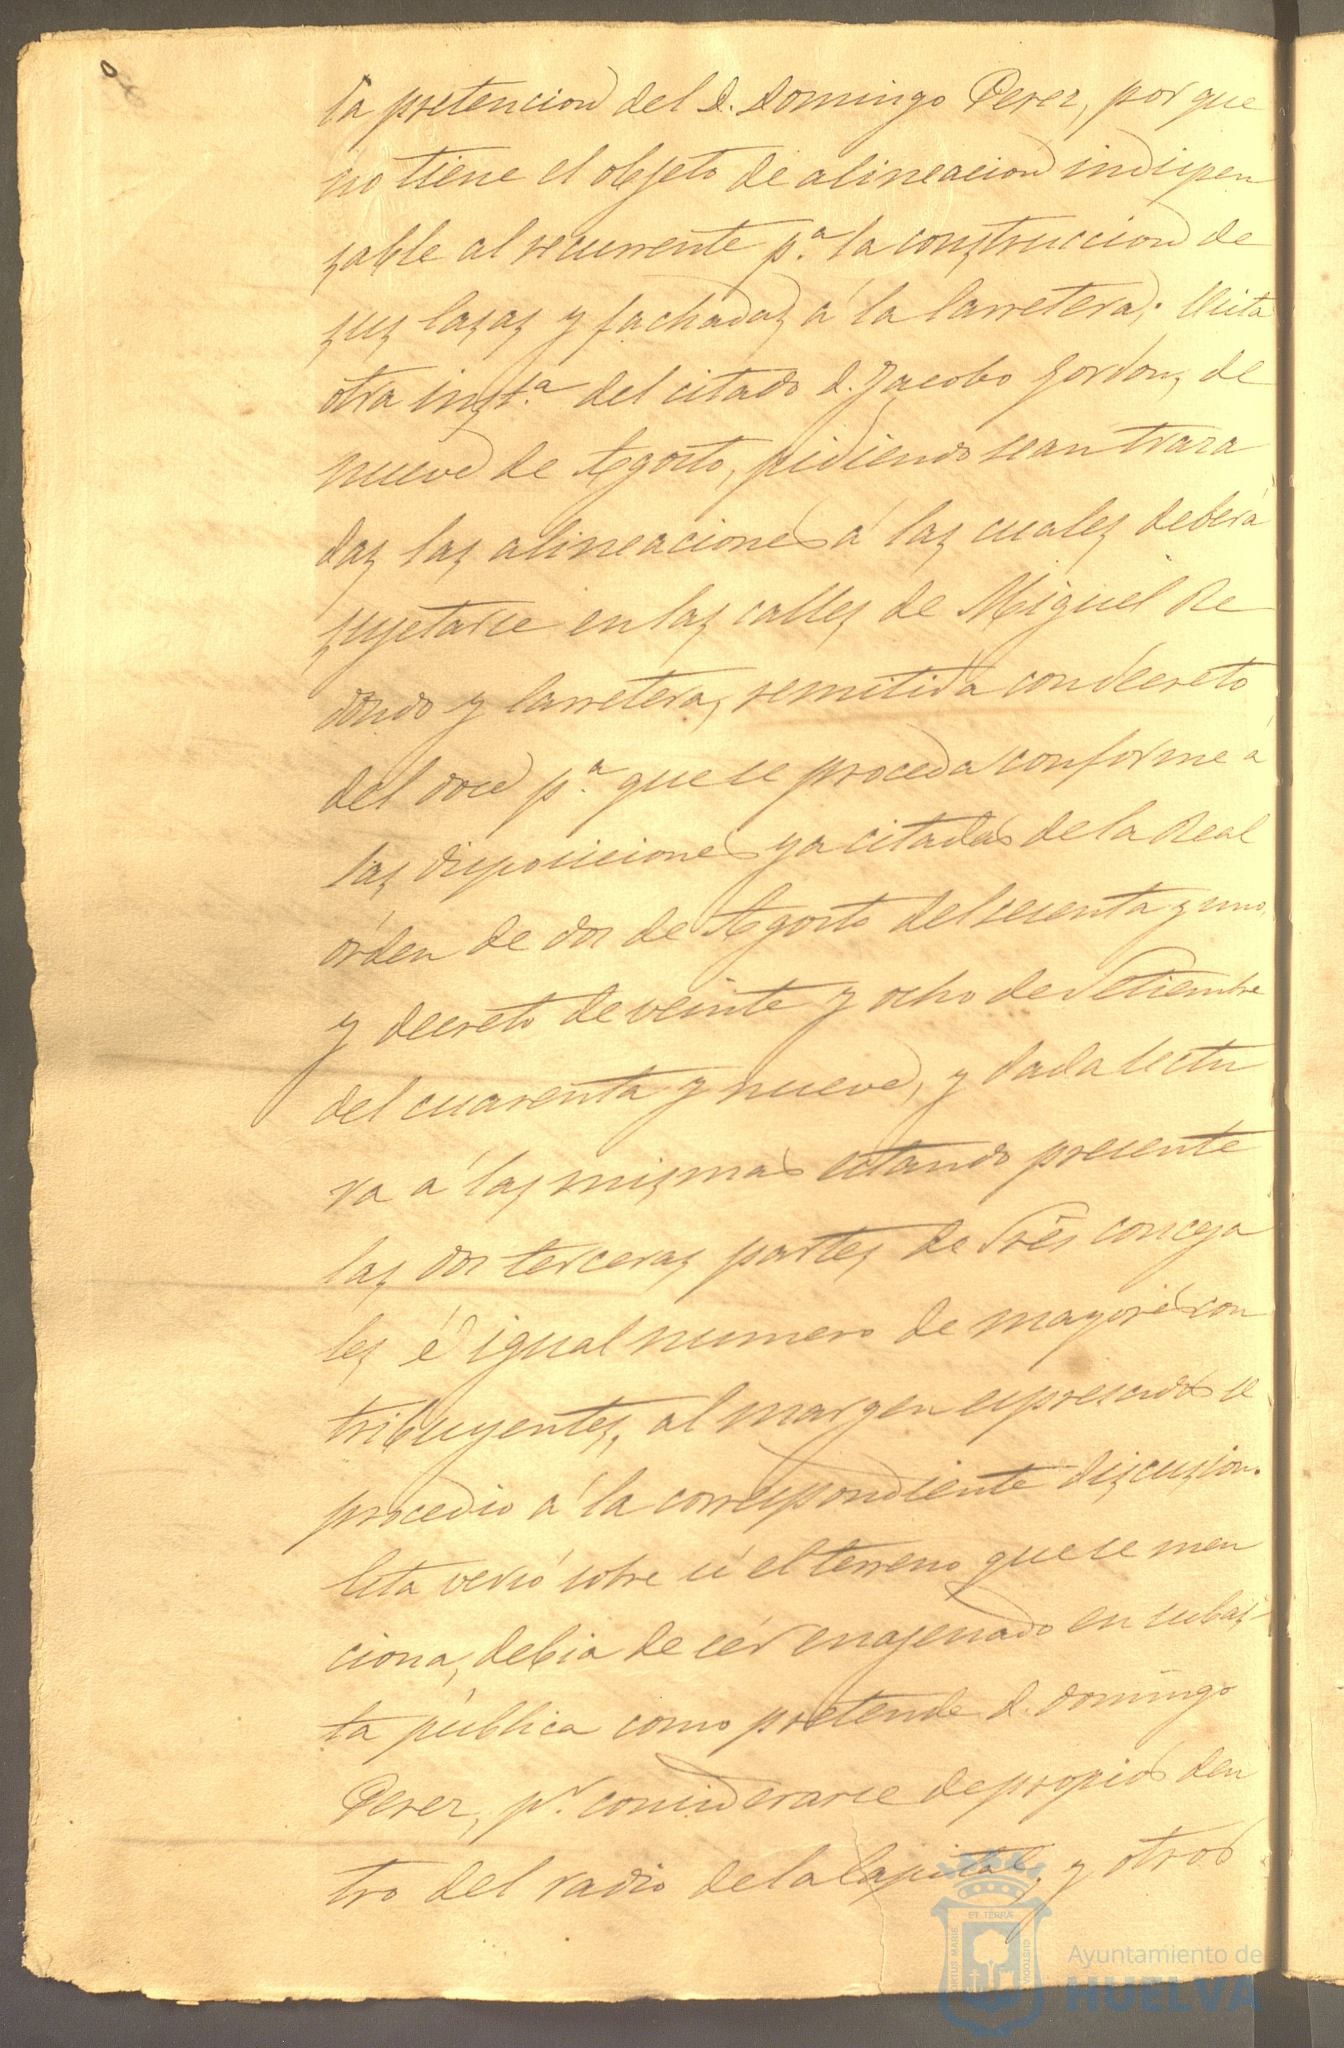 la pretencion del D. Domingo Perez, por que
no tiene el objeto de alineacion indispen
sable al recurrente p.ª la construccion de
sus casas y fachadas á la Carretera; Vista
otra inst.ª del citado D. Jacobo Gordon, de
nueve de Agosto, pidiendo sean traza
das las alineaciones á las cuales deberá
sujetarse en las calles de Miguel Re
dondo y Carretera, remitida con decreto
del doce p.ª que se proceda conforme á
las disposiciones ya citadas de la Real
órden de dos de Agosto del sesenta y uno,
y decreto de veinte y ocho de Setiembre
del cuarenta y nueve, y dada lectu
ra á las mismas estando presente
las dos terceras partes de Sres conceja
les é igual numero de mayores con
tribuyentes, al margen espresados se
procedio á la correspondiente discusion.
Esta versó sobre si el terreno que se men
ciona, debia de sér enajenado en subas
ta pública como pretende D. Domingo
Perez, p.r considerarse de propios den
tro del radio de la Capital, y otros
ET TERRÆ
PORTUS MARIS
CUSTODIA
Ayuntamiento de
HUELVA